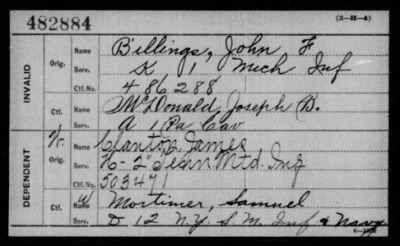 482884
(3—H—4)
INVALID
Orig. Name Billings, John F
Serv. K 1 Mich Inf
Ctf. No. 486288
Ctf. Name McDonald, Joseph B.
Serv. A 1 Pa Cav
DEPENDENT
Orig. Name Clanton James
Serv. H-2" Tenn Mtd. Inf
Ctf. No. 503471
Ctf. W Name Mortimer, Samuel
Serv. D 12 N.Y. S. M. Inf & Navy